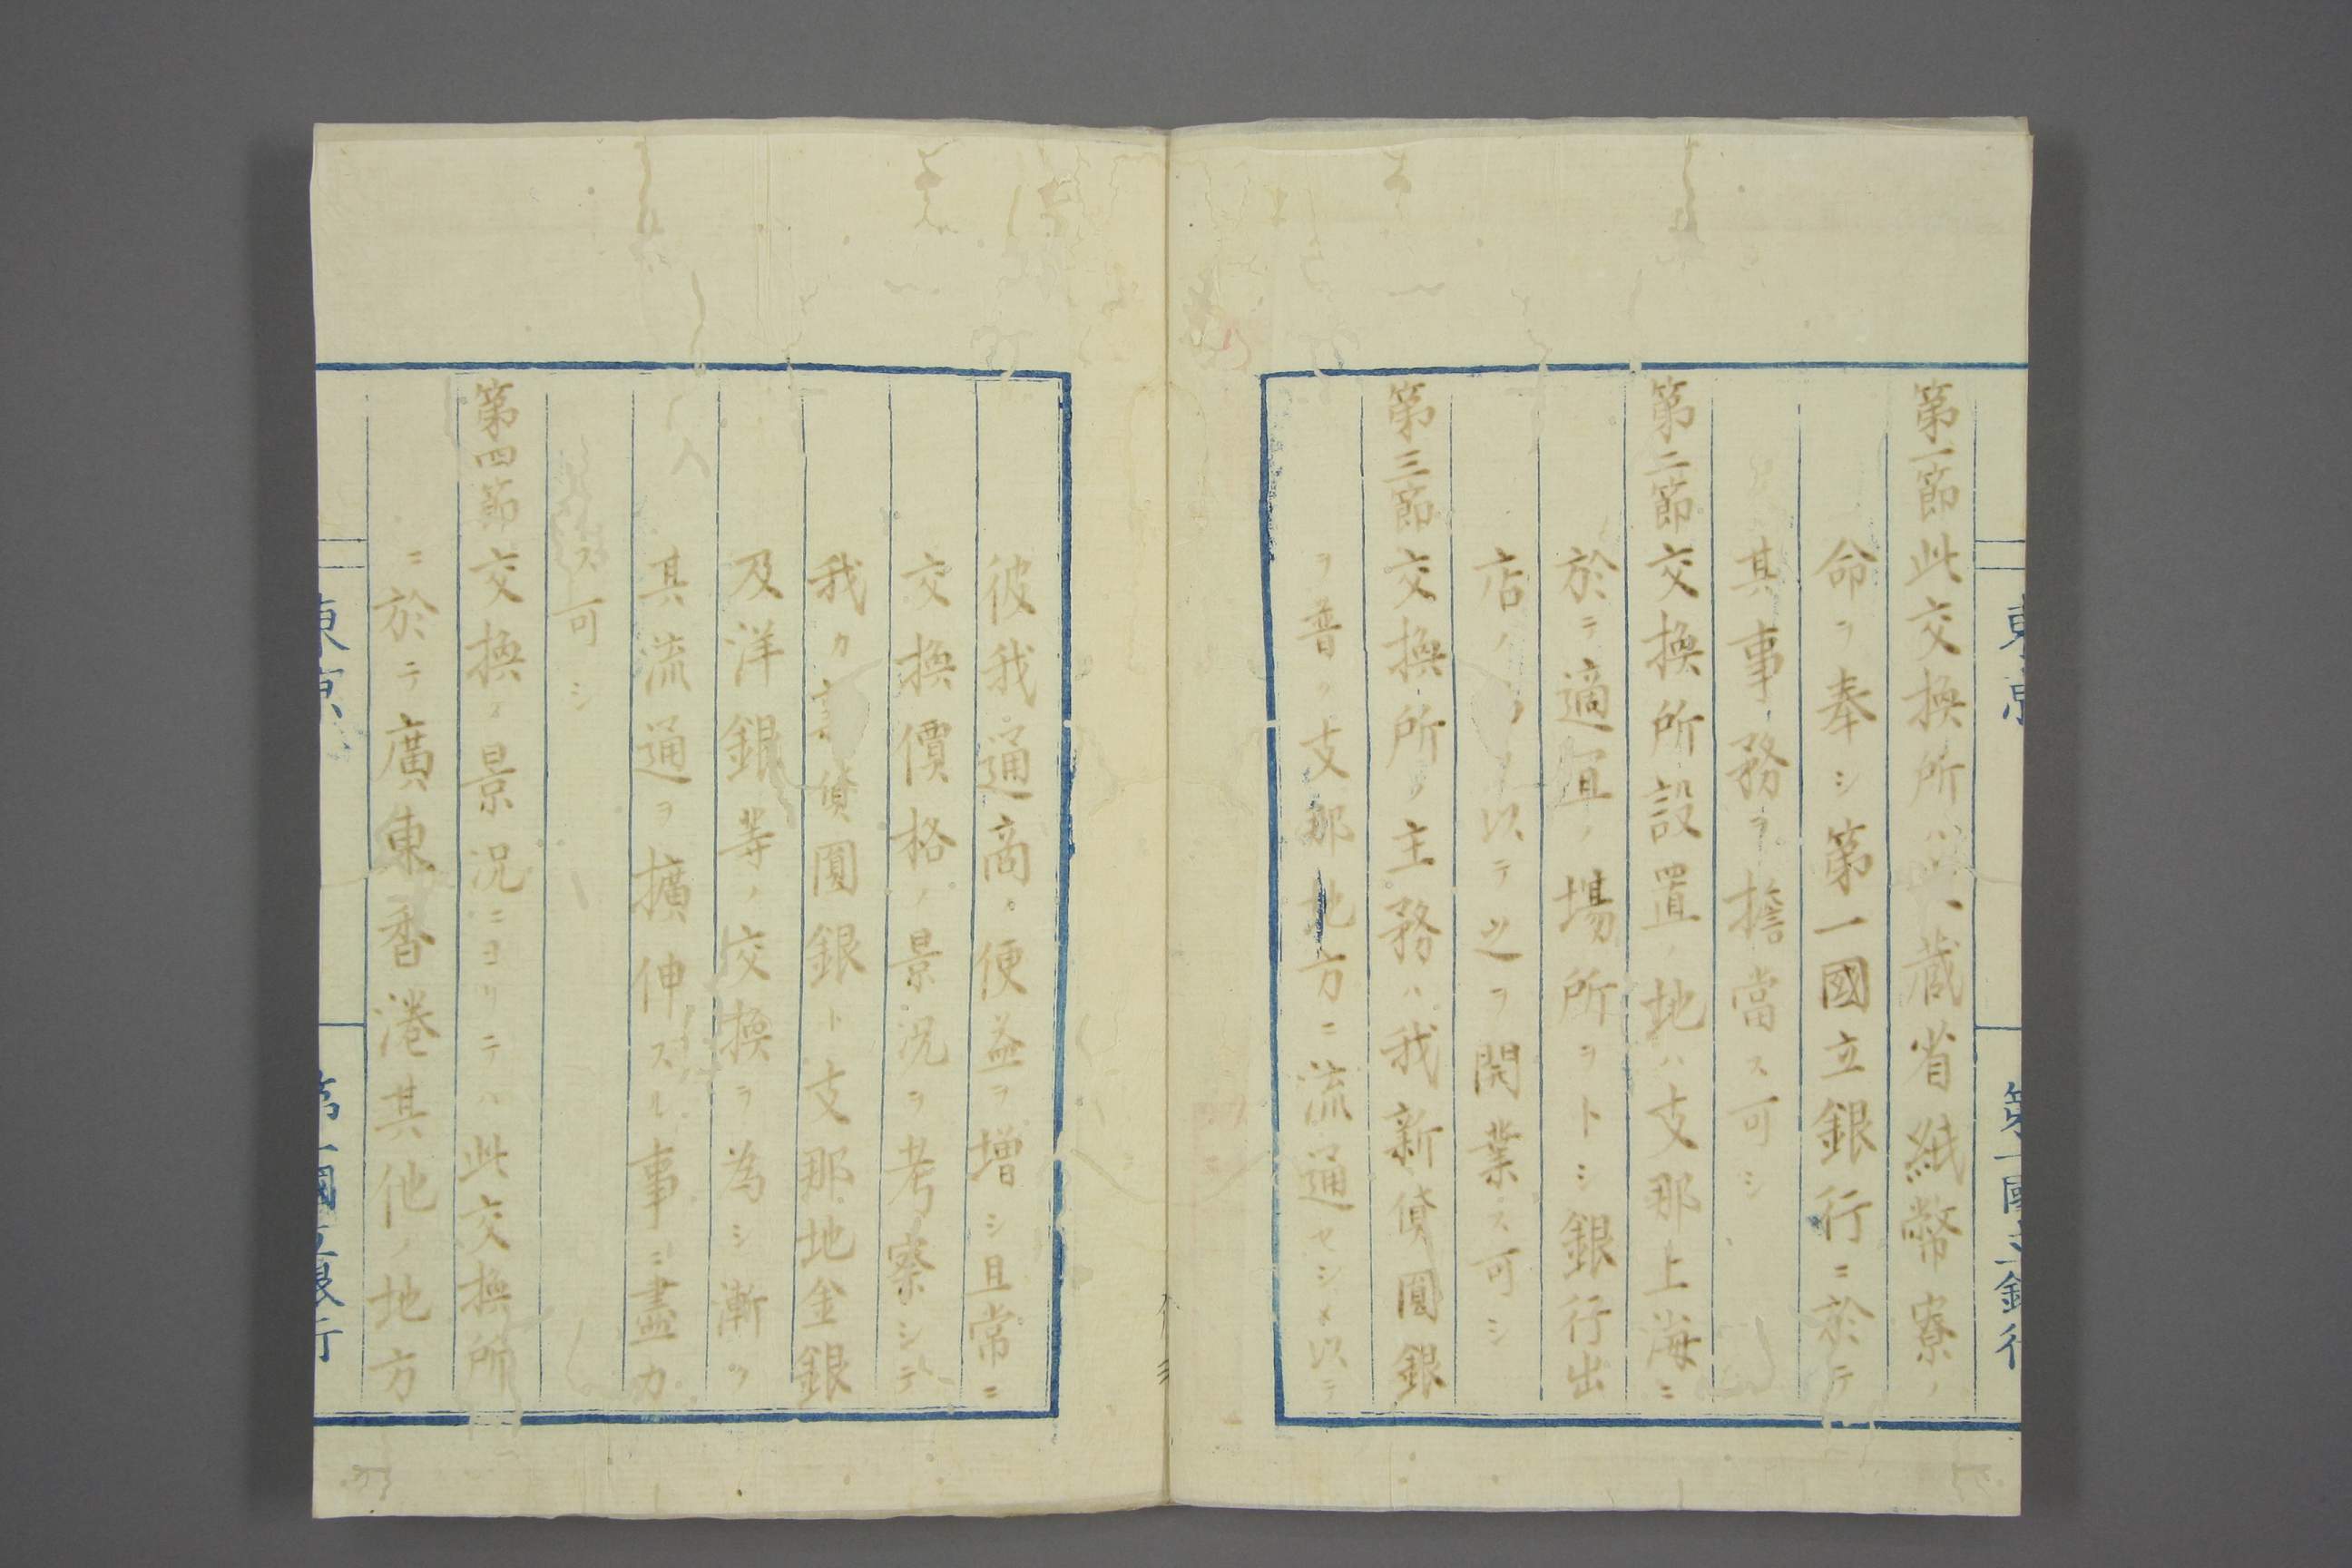 第一節此交換所ハ大蔵省紙幣寮ノ
命ヲ奉シ第一國立銀行ニ於テ
其事務ヲ擔當ス可シ
第二節交換所設置ノ地ハ支那上海ニ
於テ適宜ノ場所ヲトシ銀行出
店ノ以テ之ヲ開業ス可シ
第三節交換所ノ主務ハ我新貨圓銀
ヲ普ク支那地方ニ流通セシメ以テ
彼我通商ノ便益ヲ増シ且常ニ
交換價格ノ景況ヲ考察シテ
我カ貨圓銀ト支那地金銀
及洋銀等ノ交換ヲ為シ漸ヲ
其流通ヲ擴伸スル事ニ盡力
ス可シ
第四節交換ノ景況ニヨリテハ此交換所
ニ於テ廣東香港其他ノ地方
東京
第一國立銀行